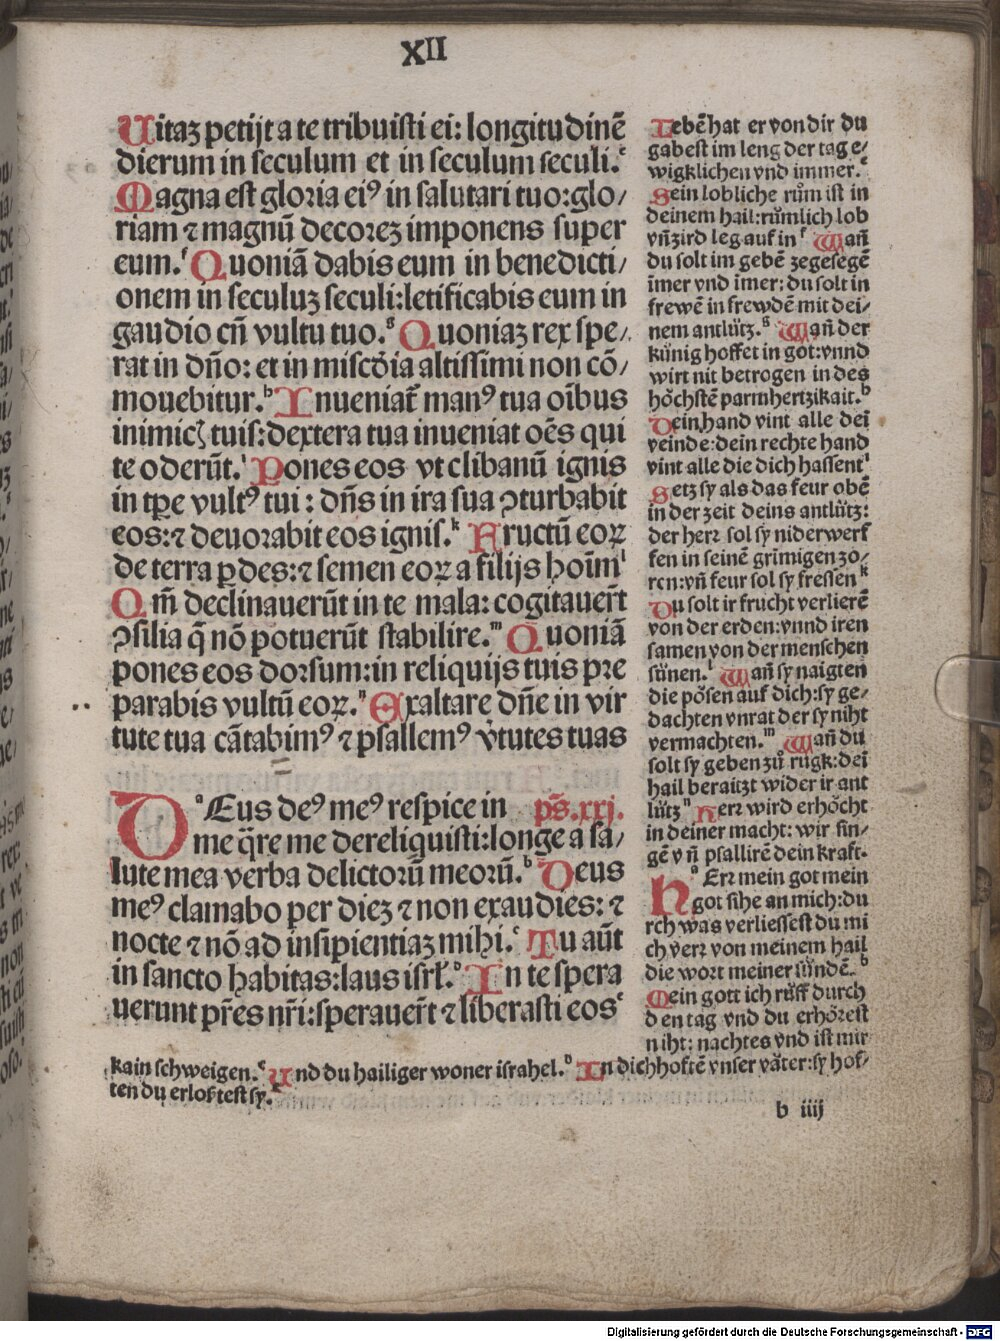 XII
Uitaʒ petijt a te tribuisti ei: longitudinē
dierum in seculum et in seculum seculi.ᵉ
Magna est gloria eiꝰ in salutari tuo:glo⸗
riam ⁊ magnū decoreʒ imponens super
eum.ᶠ Quoniā dabis eum in benedicti⸗
onem in seculuʒ seculi:letificabis eum in
gaudio cū vultu tuo.ᵍ Quoniaʒ rex spe⸗
rat in dño: et in misc̄dia altissimi non cō⸗
mouebitur.ʰ Inueniat̄ manꝰ tua oībus
inimicꝭ tuis:dextera tua inueniat oēs qui
te oderūt.ⁱ Pones eos vt clibanū ignis
in tꝑe vultꝰ tui : dñs in ira sua ꝯturbabit
eos:⁊ deuorabit eos ignis.ᵏ Fructū eoꝝ
de terra ꝑdes:⁊ semen eoꝝ a filijs hoīmˡ
Qm̄ declinauerūt in te mala: cogitauer̄t
ꝯsilia q̄ nō potuerūt stabilire.ᵐ Quoniā
pones eos dorsum:in reliquijs tuis pre
parabis vultū eoꝝ.ⁿ Exaltare dñe in vir
tute tua cātabimꝰ ⁊ psallemꝰ v̄tutes tuas
ᵃ Eus deꝰ meꝰ respice in ps̄.xxj.
me q̄re me dereliquisti:longe a sa⸗
lute mea verba delictorū meorū.ᵇ Deus
meꝰ clamabo per dieʒ ⁊ non exaudies: ⁊
nocte ⁊ nō ad insipientiaʒ mihi.ᶜ Tu aūt
in sancto habitas:laus isrl̄.ᵈ In te spera
uerunt pr̄es nr̄i:sperauer̄t ⁊ liberasti eosᵉ
Lebē hat er von dir du
gabest im leng der tag e⸗
wigklichen vnd immer.ᵉ
Sein lobliche rům ist in
deinem hail:růmlich lob
vñ zird leg auf inᶠ Wañ
du solt im gebē ʒegesegē
īmer vnd īmer: du solt in
frewē in frewdē mit dei⸗
nem antlütʒ.ᵍ Wañ der
künig hoffet in got:vnnd
wirt nit betrogen in des
höchstē parmhertʒikait.ʰ
Dein hand vint alle dei
veinde:dein rechte hand
vint alle die dich hassentⁱ
Setʒ sy als das feur obē
in der ʒeit deins antlütʒ:
der herr sol sy niderwerf
fen in seinē grimigen ʒo⸗
ren:vñ feur sol sy fressenᵏ
Du solt ir frucht verlierē
von der erden:vnnd iren
samen von der menschen
sünen.ˡ Wañ sy naigten
die pösen auf dich:sy ge⸗
dachten vnrat der sy niht
vermachten.ᵐ Wañ du
solt sy geben ʒů rugk:dei
hail beraitʒt wider ir ant
lütʒⁿ Herr wird erhöcht
in deiner macht: wir sin⸗
gē vñ psallirē dein kraft.
Hᵃ Err mein got mein
got sihe an mich:du
rch was verliessest du mi
ch verr von meinem hail
die wort meiner sündē.ᵇ
Mein gott ich růff durch
den tag vnd du erhörest
niht: nachtes vnd ist mir
kain schweigen.ᶜ Und du hailiger woner israhel.ᵈ In dich hoftē vnser väter:sy hof⸗
ten du erlostest sy.ᵉ
b iiij
Digitalisierung gefördert durch die Deutsche Forschungsgemeinschaft - DFG